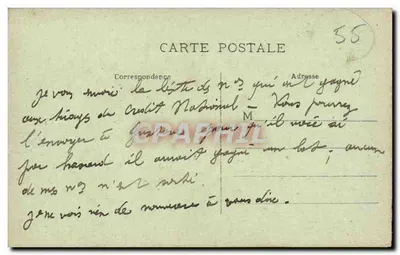 55
CARTE POSTALE
Correspondance
Adresse
je vous envoie la liste des nos qui ont gagné
aux tirages du Credit National - Vous pourrez
M
l'envoyer à pour qu'il voie si
par hasard il aurait gagné un lot, aucun
de mes nos n'est sorti.
je ne vois rien de nouveau à vous dire.